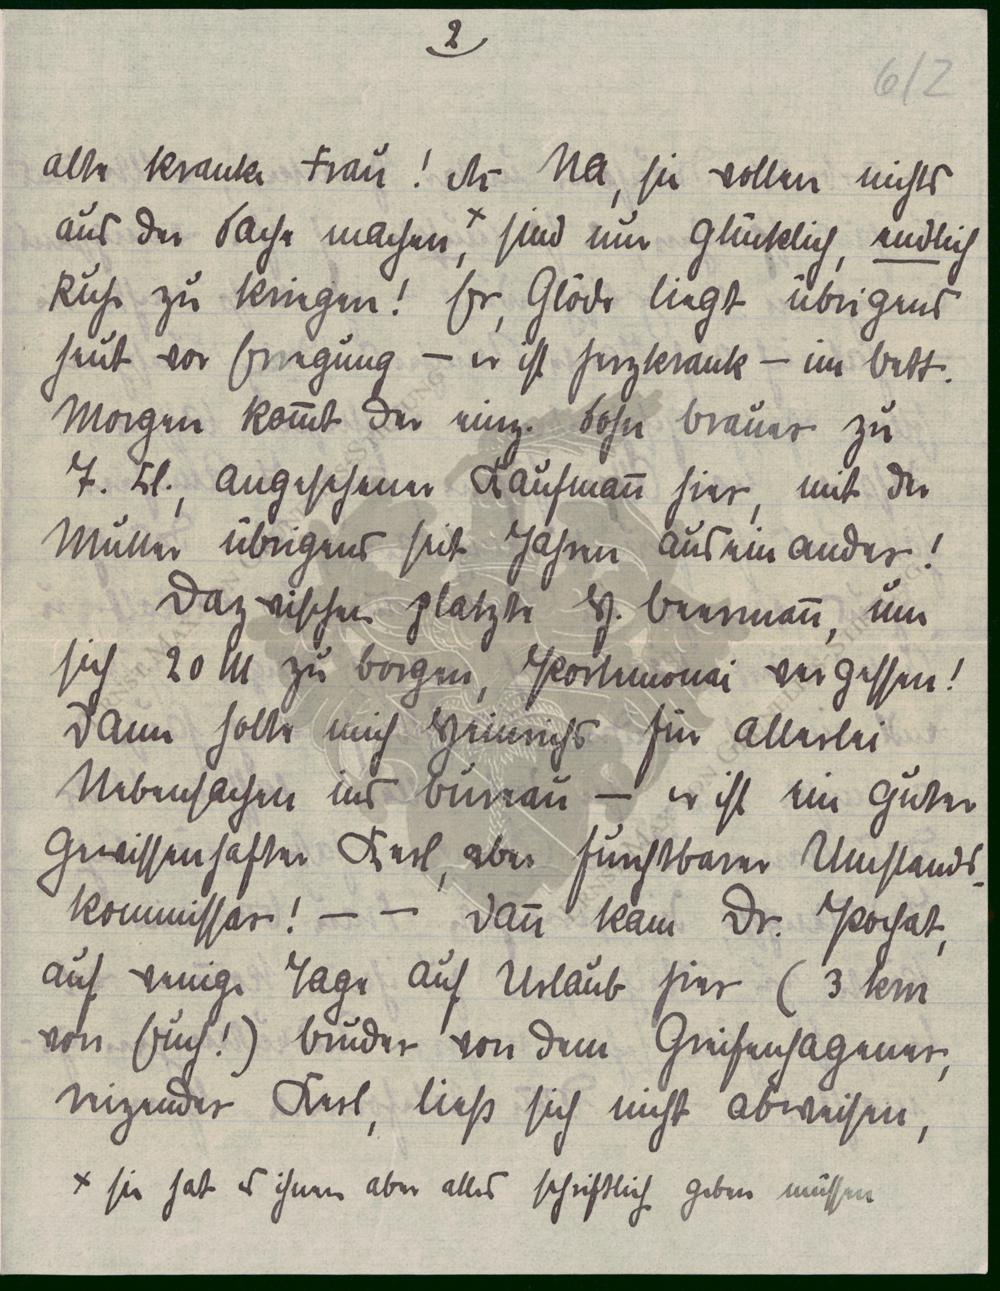 2
6/2
alte kranke Frau! Na, sie wollen nichts
aus der Sache machen,× sind nur glücklich, endlich
Ruhe zu kriegen! Er, Glöde liegt übrigens
heut vor Erregung – er ist herzkrank – im Bett.
Morgen kom̅t der einz. Sohn Brauer zu
7. Kl., angesehener Kaufman̅ hier, mit der
Mutter übrigens seit Jahren auseinander!
Dazwischen platzte H. Beerman̅, um
sich 20 M zu borgen, Portemonai vergessen!
Dann holte mich Heinrichs für allerlei
Nebensachen ins Bureau – er ist ein guter
gewissenhafter Kerl, aber furchtbarer Umstands-
kommissar! – – Dan̅ kam Dr. Pochat,
auf wenige Tage auf Urlaub hier (3 km
von Euch!) Bruder von dem Greifenhagener,
reizender Kerl, ließ sich nicht abweisen,
× sie hat es ihnen aber alles schriftlich geben müssen